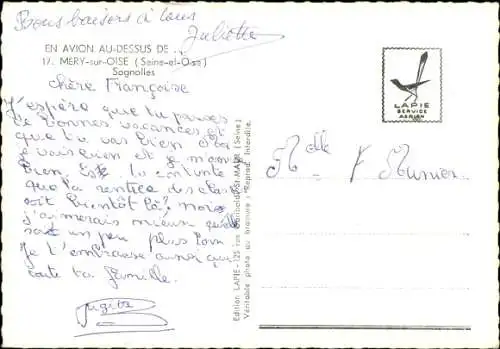 Bons baisers à tous
Juliette
EN AVION AU-DESSUS DE . . .
17. MERY-sur-OISE (Seine-et-Oise)
Sognolles
chère Françoise
J'espère que tu passes
de bonnes vacances et
que tu vas bien
je vais bien et je
bien. Es. tu contente
que la rentrée des classes
soit bientôt là? moi
j'aimerais mieux qu'elle
soit un peu plus loin
Je t'embrasse ainsi que
toute ta famille.
LAPIE
SERVICE
AERIEN
Melle F Munier
Edition LAPIE - 125 rue Garibaldi, St MAUR (Seine)
Véritable photo au bromure - Reprod. Interdite.